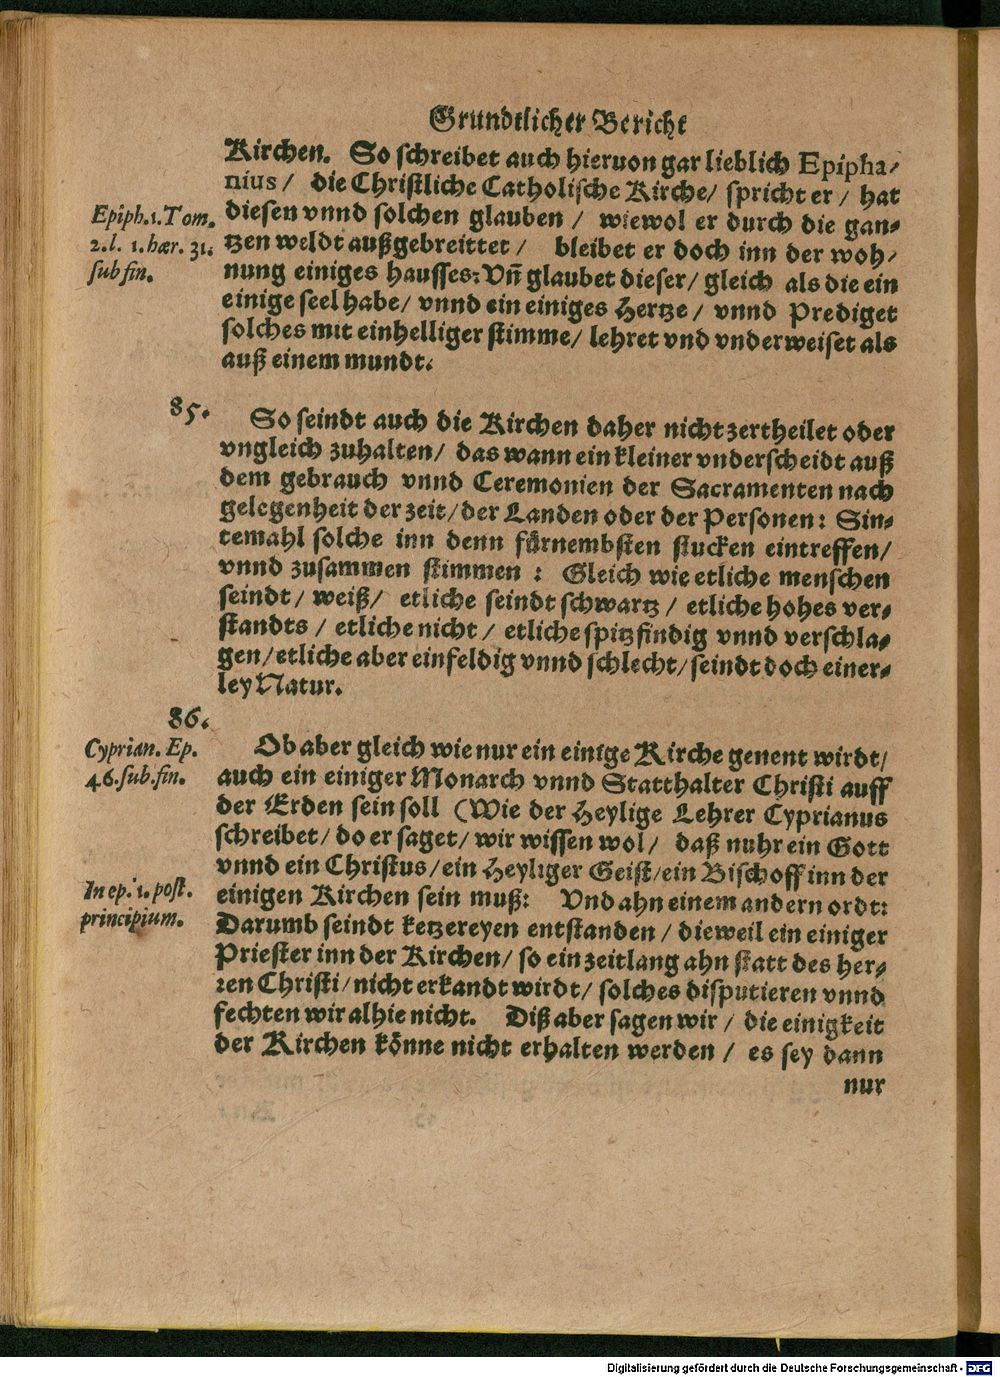 Grundtlicher Bericht
Kirchen. So schreibet auch hieruon gar lieblich Epipha-
nius / die Christliche Catholische Kirche/ spricht er / hat
Epiph. 1. Tom.
2. l. 1. hær. 31.
sub fin.
diesen vnnd solchen glauben / wiewol er durch die gan-
tzen weldt außgebreittet / bleibet er doch inn der woh-
nung einiges hausses: Vñ glaubet dieser/ gleich als die ein
einige seel habe/ vnnd ein einiges Hertze / vnnd Prediget
solches mit einhelliger stimme/ lehret vnd vnderweiset als
auß einem mundt.
85.
So seindt auch die Kirchen daher nicht zertheilet oder
vngleich zuhalten/ das wann ein kleiner vnderscheidt auß
dem gebrauch vnnd Ceremonien der Sacramenten nach
gelegenheit der zeit/der Landen oder der Personen: Sin-
temahl solche inn denn fürnembsten stucken eintreffen/
vnnd zusammen stimmen : Gleich wie etliche menschen
seindt/ weiß/ etliche seindt schwartz / etliche hohes ver-
standts / etliche nicht / etliche spitzfindig vnnd verschla-
gen/etliche aber einfeldig vnnd schlecht/seindt doch einer-
ley Natur.
86.
Cyprian. Ep.
46. sub. fin.
Ob aber gleich wie nur ein einige Kirche genent wirdt/
auch ein einiger Monarch vnnd Statthalter Christi auff
der Erden sein soll (Wie der Heylige Lehrer Cyprianus
schreibet/ do er saget/ wir wissen wol/ daß nuhr ein Gott
vnnd ein Christus/ein Heyliger Geist/ein Bischoff inn der
In ep. 1. post.
principium.
einigen Kirchen sein muß: Vnd ahn einem andern ordt:
Darumb seindt ketzereyen entstanden / dieweil ein einiger
Priester inn der Kirchen/ so ein zeitlang ahn statt des her-
ren Christi/nicht erkandt wirdt/ solches disputieren vnnd
fechten wir alhie nicht. Diß aber sagen wir / die einigkeit
der Kirchen könne nicht erhalten werden / es sey dann
nur
Digitalisierung gefördert durch die Deutsche Forschungsgemeinschaft - DFG